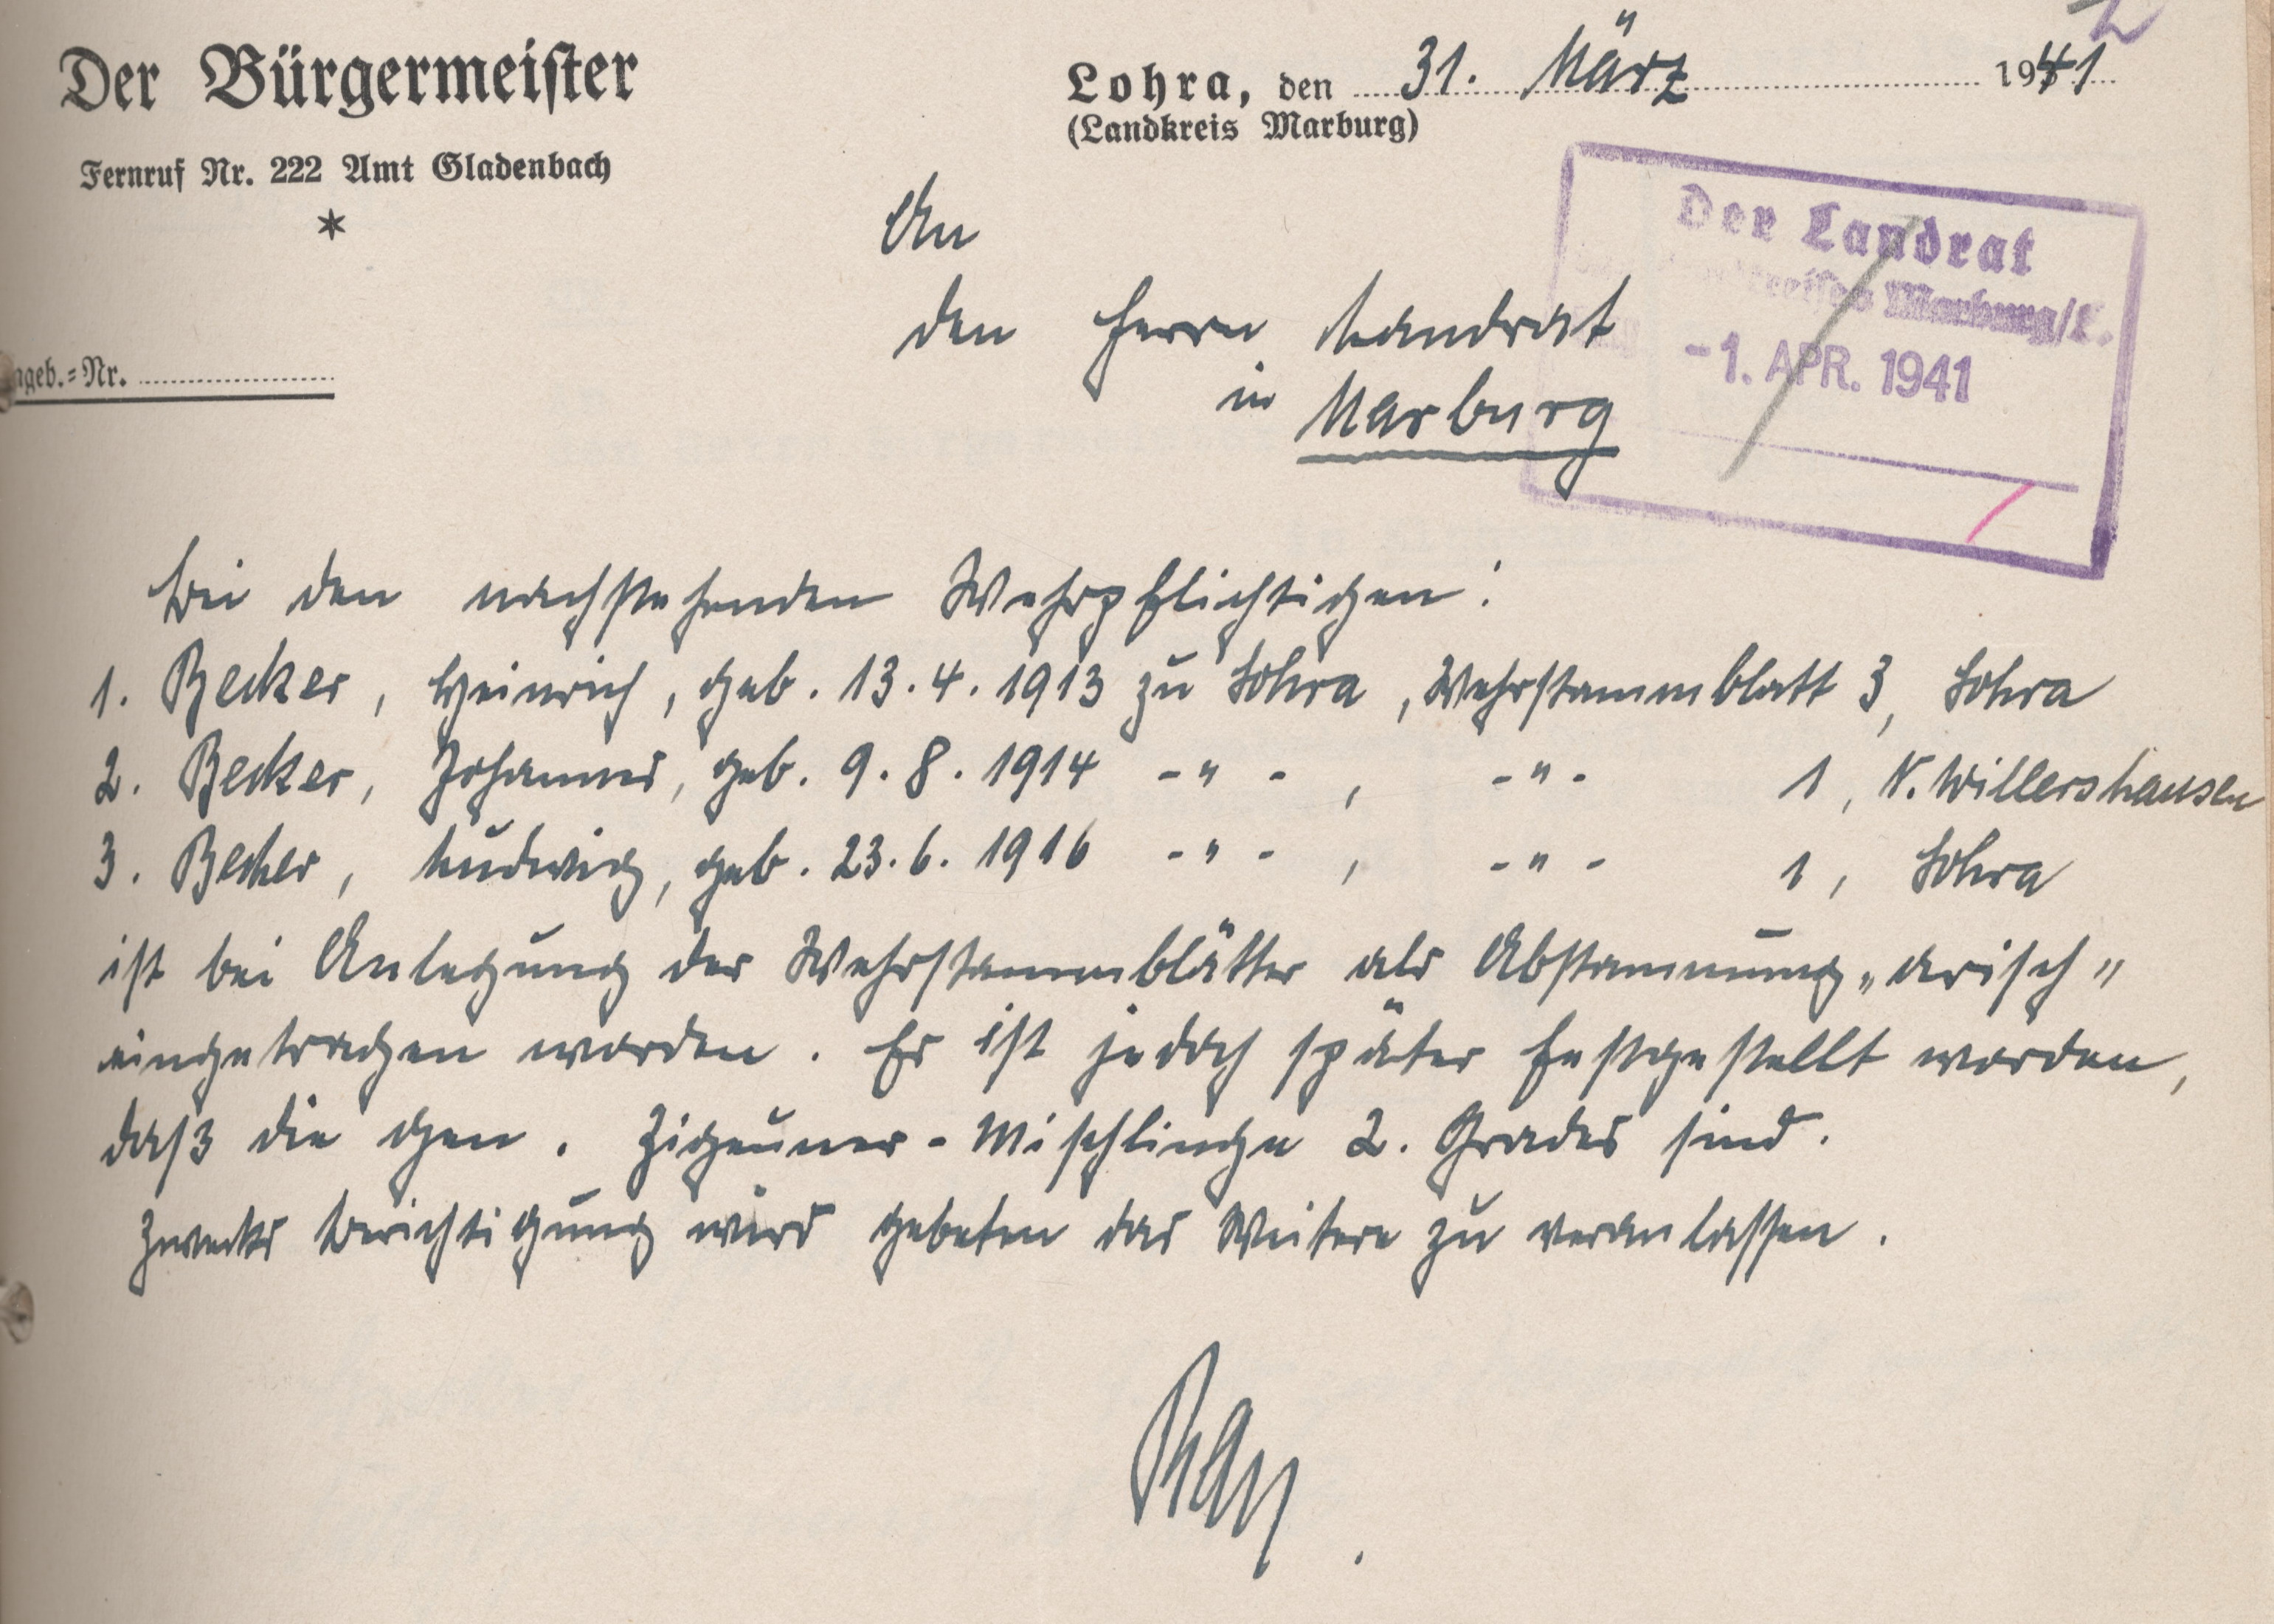 Der Bürgermeister
Fernruf Nr. 222 Amt Gladenbach
*
ngeb.-Nr.
Lohra, den 31. März 1941
(Landkreis Marburg)
Der Landrat
Marburg/L.
-1. APR. 1941
An
den Herrn Landrat
in Marburg
Bei den nachstehenden Wehrpflichtigen:
1. Becker, Heinrich, geb. 13.4.1913 zu Lohra, Wehrstammblatt 3, Lohra
2. Becker, Johannes, geb. 9.8.1914 -"-, -"- 1, N. Willershausen
3. Becker, Ludwig, geb. 23.6.1916 -"-, -"- 1, Lohra
ist bei Anlegung der Wehrstammblätter als Abstammung „arisch"
eingetragen worden. Es ist jedoch später festgestellt worden,
daß die gen. Zigeuner-Mischlinge 2. Grades sind.
Zwecks Berichtigung wird gebeten das Weitere zu veranlassen.